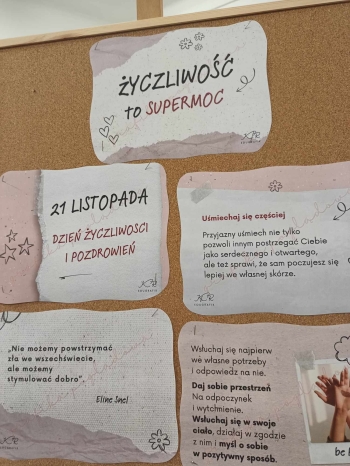 ŻYCZLIWOŚĆ
to SUPERMOC
21 LISTOPADA
DZIEŃ ŻYCZLIWOŚCI
I POZDROWIEŃ
Uśmiechaj się częściej
Przyjazny uśmiech nie tylko
pozwoli innym postrzegać Ciebie
jako serdecznego i otwartego,
ale też sprawi, że sam poczujesz się
lepiej we własnej skórze.
„Nie możemy powstrzymać
zła we wszechświecie,
ale możemy
stymulować dobro".
Eline Snel
Wsłuchaj się najpierw
we własne potrzeby
i odpowiedz na nie.
Daj sobie przestrzeń
Na odpoczynek
i wytchnienie.
Wsłuchaj się w swoje
ciało, działaj w zgodzie
z nim i myśl o sobie
w pozytywny sposób.
be